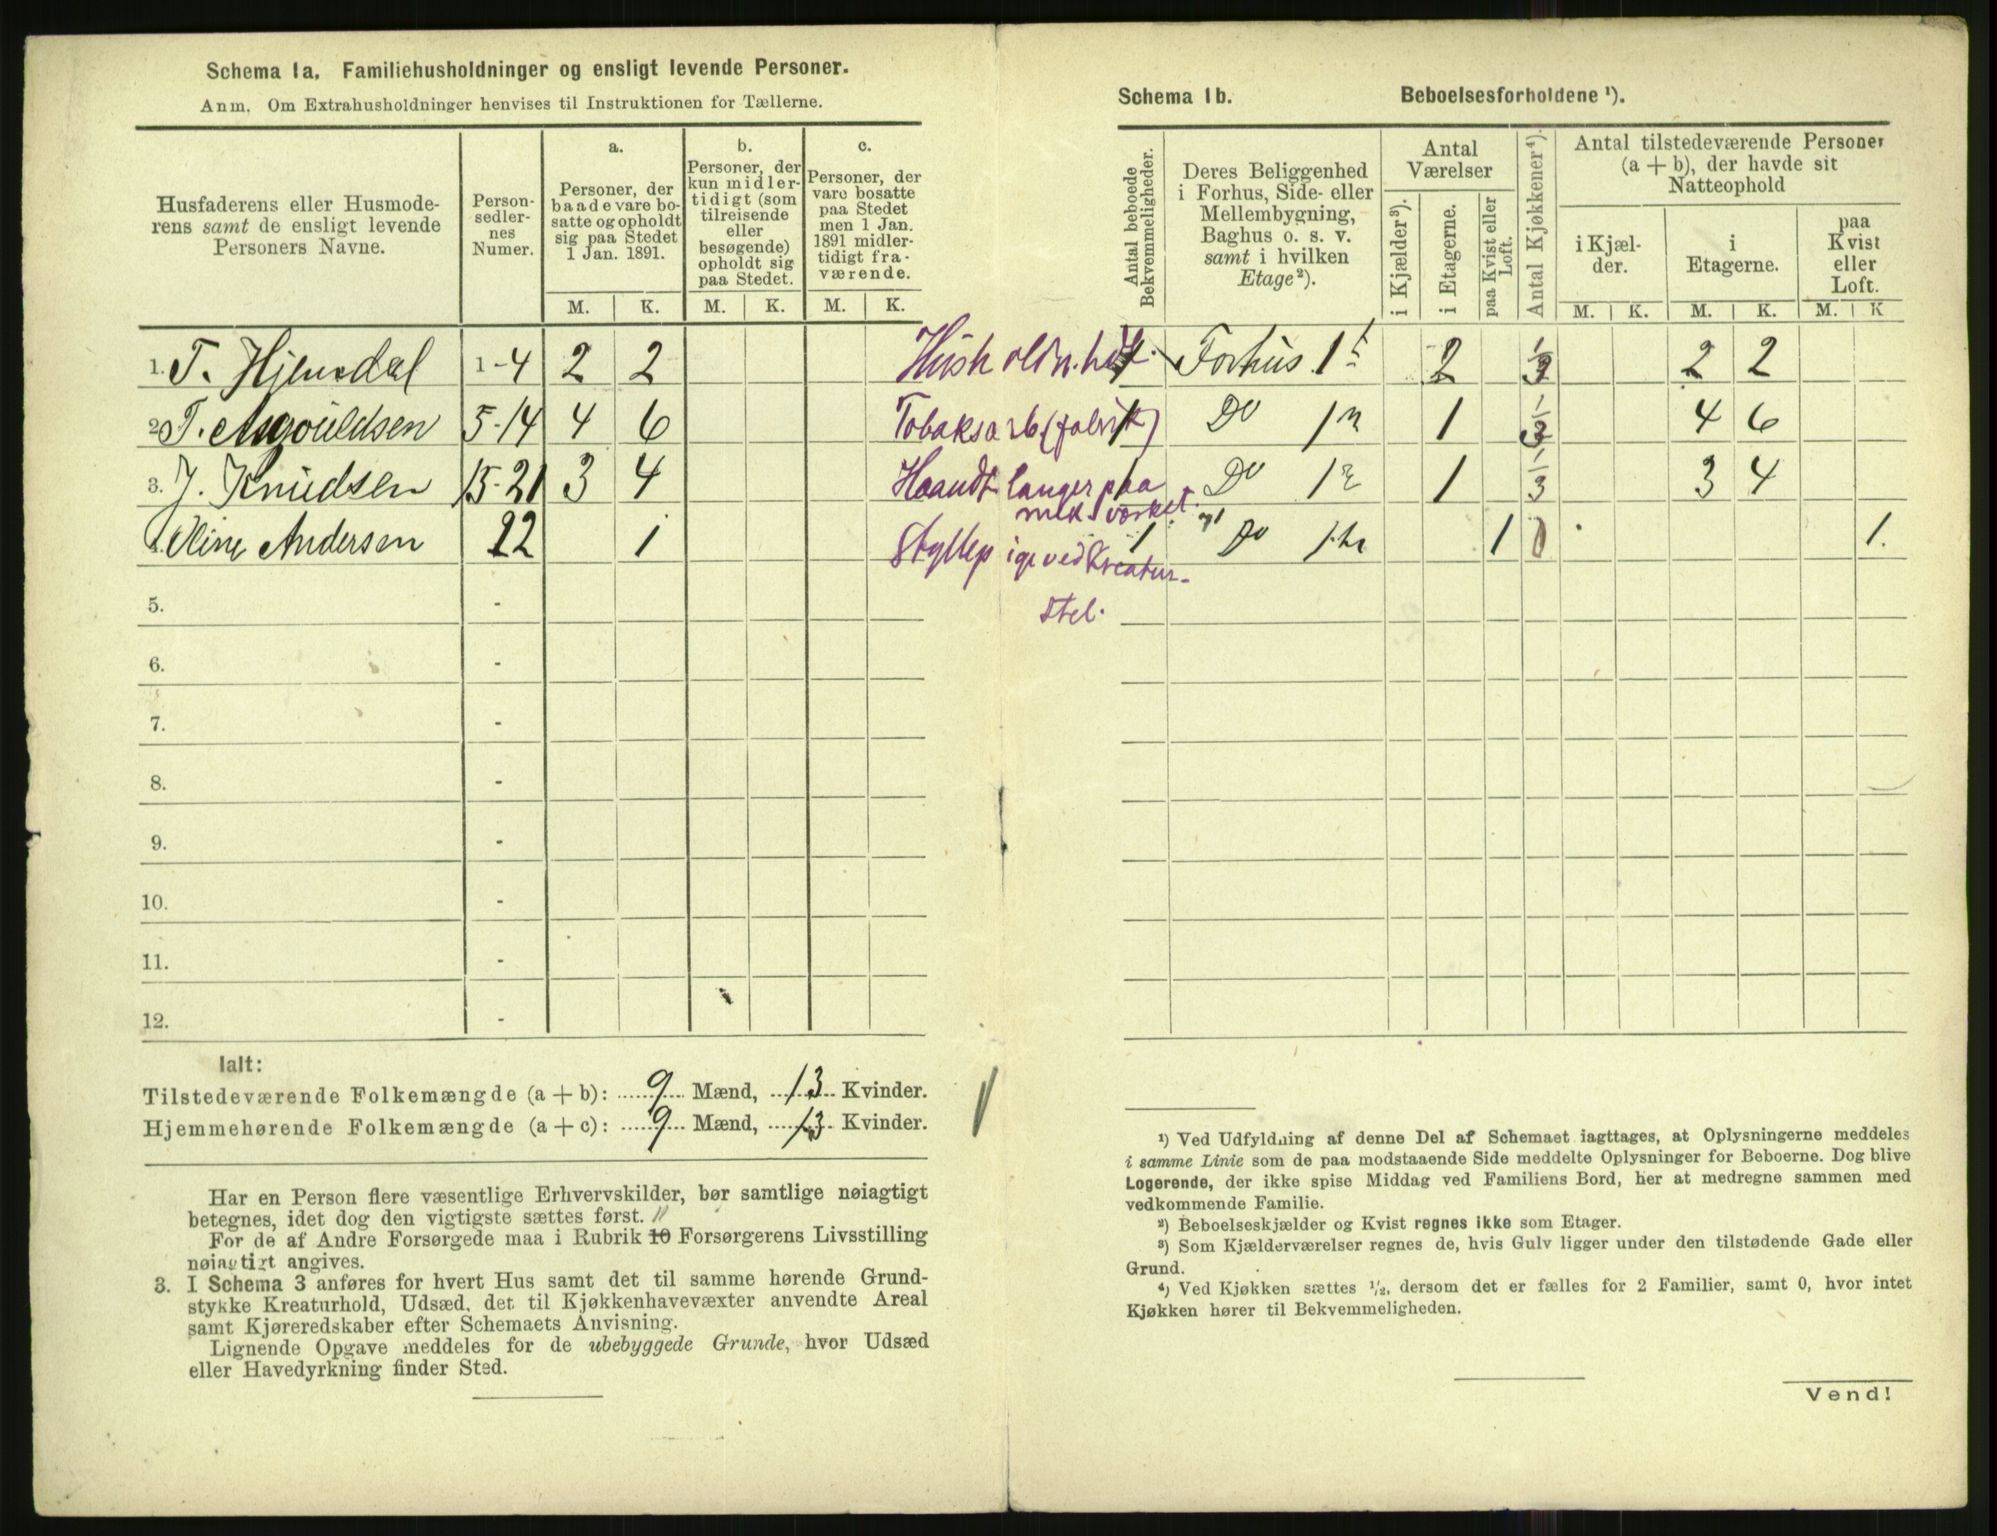 Schema 1a. Familiehusholdninger og ensligt levende Personer.
Anm. Om Extrahusholdninger henvises til Instruktionen for Tællerne.
Husfaderens eller Husmode-
rens samt de ensligt levende
Personers Navne.
Person-
sedler-
nes
Numer.
a.
Personer, der
baade vare bo-
satte og opholdt
sig paa Stedet
1 Jan. 1891.
b.
Personer, der
kun midler-
tidigt (som
tilreisende
eller
besøgende)
opholdt sig
paa Stedet.
c.
Personer, der
vare bosatte
paa Stedet
men 1 Jan.
1891 midler-
tidigt fra-
værende.
M. K. M. K. M. K.
1. T. Hjemdal 1-4 2 2
2. T. 5-14 4 6
3. J. Knudsen 15-21 3 4
4. Oline Andersen 22 1
5. -
6. -
7. -
8. -
9. -
10. -
11. -
12. -
Ialt:
Tilstedeværende Folkemængde (a + b): 9 Mænd, 13 Kvinder.
Hjemmehørende Folkemængde (a + c): 9 Mænd, 13 Kvinder.
Har en Person flere væsentlige Erhvervskilder, bør samtlige nøiagtigt
betegnes, idet dog den vigtigste sættes først.
For de af Andre Forsørgede maa i Rubrik 10 Forsørgerens Livsstilling
nøiagtigt angives.
3. I Schema 3 anføres for hvert Hus samt det til samme hørende Grund-
stykke Kreaturhold, Udsæd, det til Kjøkkenhavevæxter anvendte Areal
samt Kjøreredskaber efter Schemaets Anvisning.
Lignende Opgave meddeles for de ubebyggede Grunde, hvor Udsæd
eller Havedyrkning finder Sted.
Schema 1b. Beboelsesforholdene ¹).
Antal beboede
Bekvemmeligheder.
Deres Beliggenhed
i Forhus, Side- eller
Mellembygning,
Baghus o. s. v.
samt i hvilken
Etage²).
Antal
Værelser
i Kjælder³).
i Etagerne.
paa Kvist eller
Loft.
Antal Kjøkkener⁴).
Antal tilstedeværende Personer
(a + b), der havde sit
Natteophold
i Kjæl-
der.
i
Etagerne.
paa
Kvist
eller
Loft.
M. K. M. K. M. K
Forhus 1 2 1/3 2 2
Tobaksarb (fabrik) 1 Do 1 1 1/3 4 6
Haandtlanger paa 1 Do 1 1 1/3 3 4
mek. værket.
1 Do 1 1 0 1.
ved Kreatur-
stel.
¹) Ved Udfyldning af denne Del af Schemaet iagttages, at Oplysningerne meddeles
i samme Linie som de paa modstaaende Side meddelte Oplysninger for Beboerne. Dog blive
Logerende, der ikke spise Middag ved Familiens Bord, her at medregne sammen med
vedkommende Familie.
²) Beboelseskjælder og Kvist regnes ikke som Etager.
³) Som Kjælderværelser regnes de, hvis Gulv ligger under den tilstødende Gade eller
Grund.
⁴) Ved Kjøkken sættes ¹/₂, dersom det er fælles for 2 Familier, samt 0, hvor intet
Kjøkken hører til Bekvemmeligheden.
Vend!